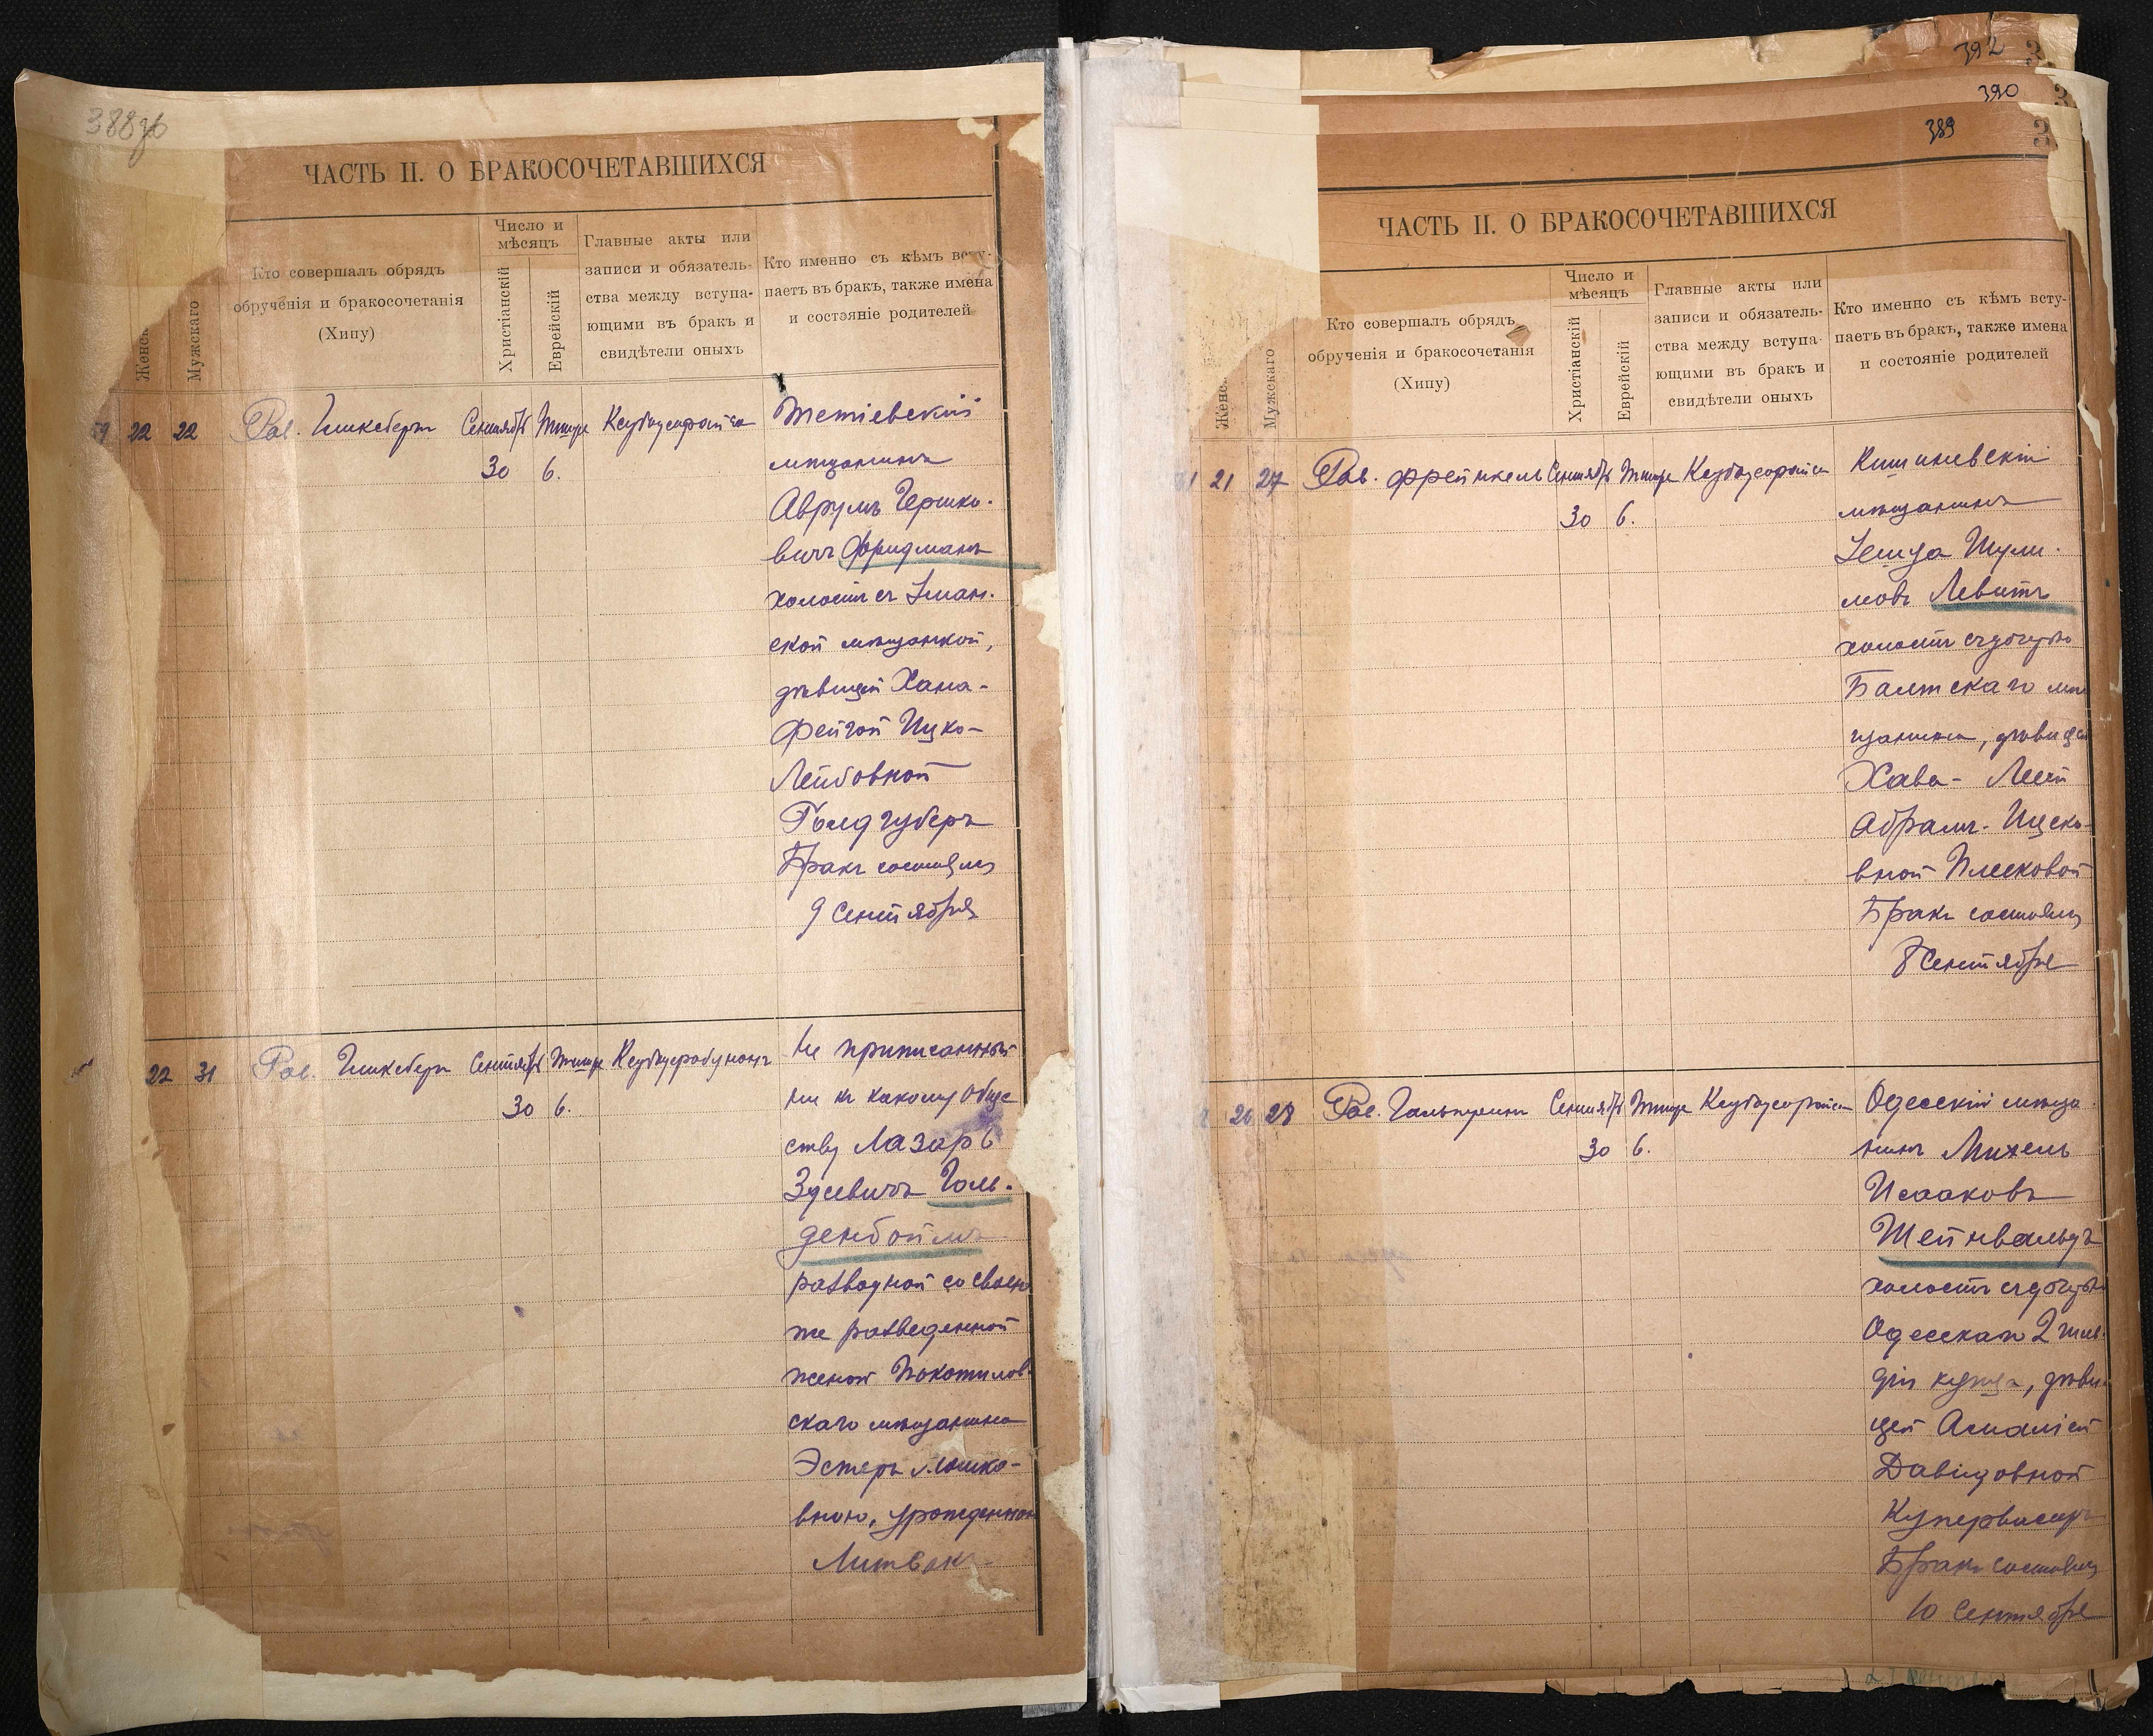 388об
ЧАСТЬ II. О БРАКОСОЧЕТАВШИХСЯ
Женск
Мужскаго
Кто совершалъ обрядъ
обрученія и бракосочетанія
(Хипу)
Число и
мѣсяцъ
Христіанскій
Еврейскій
Главные акты или
записи и обязатель-
ства между вступа-
ющими въ бракъ и
свидѣтели оныхъ
Кто именно съ кѣмъ всту-
паетъ въ бракъ, также имена
и состояніе родителей
22 22 Рав. Гинксберъ Сентябрь Тишре
30 6.
Тетіевскій
мѣщанинъ
Аврумъ Гершко-
вичъ Фридманъ
холостъ съ Уман-
ской мѣщанкой,
дѣвицей Хана-
Фейгой Ицко-
Лейбовной
Гольдгуберъ
Бракъ состоялся
9 Сентября
22 31 Рав. Гинксберъ Сентябрь Тишре
30 6.
Не приписанный
ни къ какому обще
ству Лазарь
Зусевичъ Голь-
денбоймъ
разводной со своею
же разведенной
женой Покотилов-
скаго мѣщанина
Эстеръ Мошко-
вною, урожденною
Литвакъ
392
390
389
ЧАСТЬ II. О БРАКОСОЧЕТАВШИХСЯ
Женс
Мужскаго
Кто совершалъ обрядъ
обрученія и бракосочетанія
(Хипу)
Число и
мѣсяцъ
Христіанскій
Еврейскій
Главные акты или
записи и обязатель-
ства между вступа-
ющими въ бракъ и
свидѣтели оныхъ
Кто именно съ кѣмъ всту-
паетъ въ бракъ, также имена
и состояніе родителей
21 27 Рав. Френкель Сентябрь Тишре
30 6.
Кишиневскій
мѣщанинъ
Шули-
мовъ Левитъ
холостъ съ дочерью
Балтскаго мѣ
щанина, дѣвицей
Хава-Леей
Абрамъ-Ицко-
вной Плесковой
Бракъ состоялся
8 Сентября
26 28 Рав. Гальперинъ Сентябрь Тишре
30 6.
Одесскій мѣща
нинъ Михель
Исааковъ
Штейнвальдъ
холостъ съ дочерью
Одесскаго 2 гиль-
діи купца, дѣви-
цей Амаліей
Давидовной
Купервасеръ
Бракъ состоялся
10 Сентября